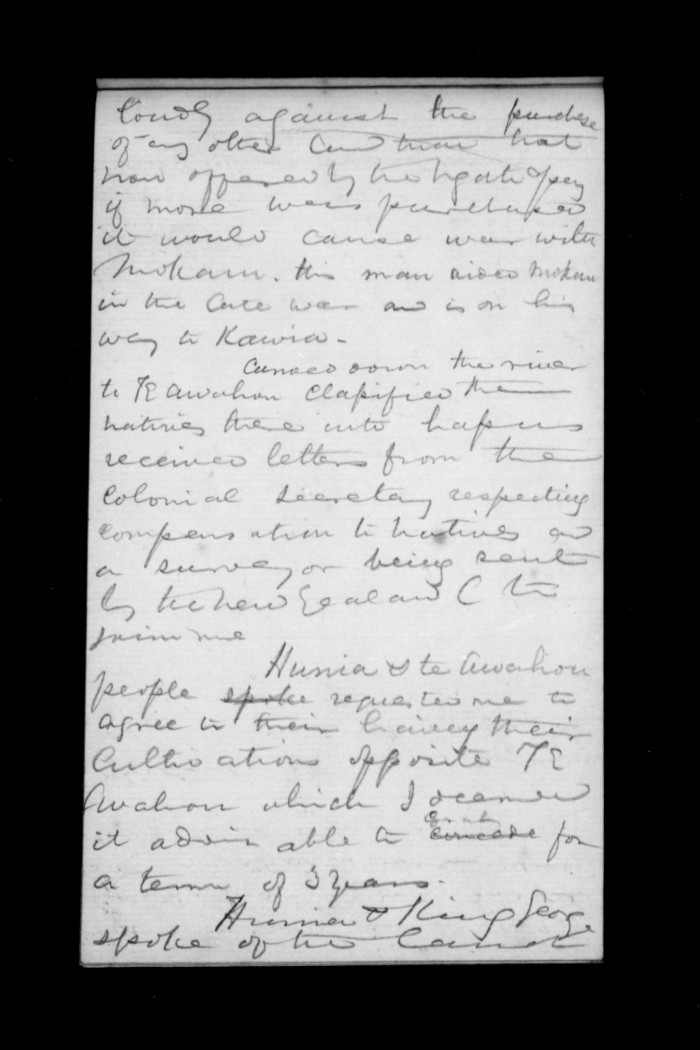 loudly against the purchase
of any other land than that
now offered by the Ngatiapa
if more were purchased
it would cause war with
Mokau. this man aided Mokau
in the late war and is on his
way to Kawia -
Canoed down the river
to TE Awahou classified the
natives there into hapus
received letters from the
Colonial Secretary respecting
compensation to Natives and
a surveyor being sent
by the New Zealand C to
join me
Hunia & te Awahou
people spoke requested me to
agree to their having their
Cultivations opposite TE
Awahou which I deemed
it advisable to concede for
a term of 3 years.
Hunia & King George
spoke of the land